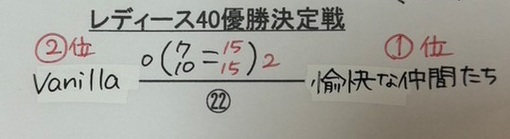 レディース40優勝決定戦
②位 0(7=15 2 ①位
10=15)
Vanilla 愉快な仲間たち
㉒